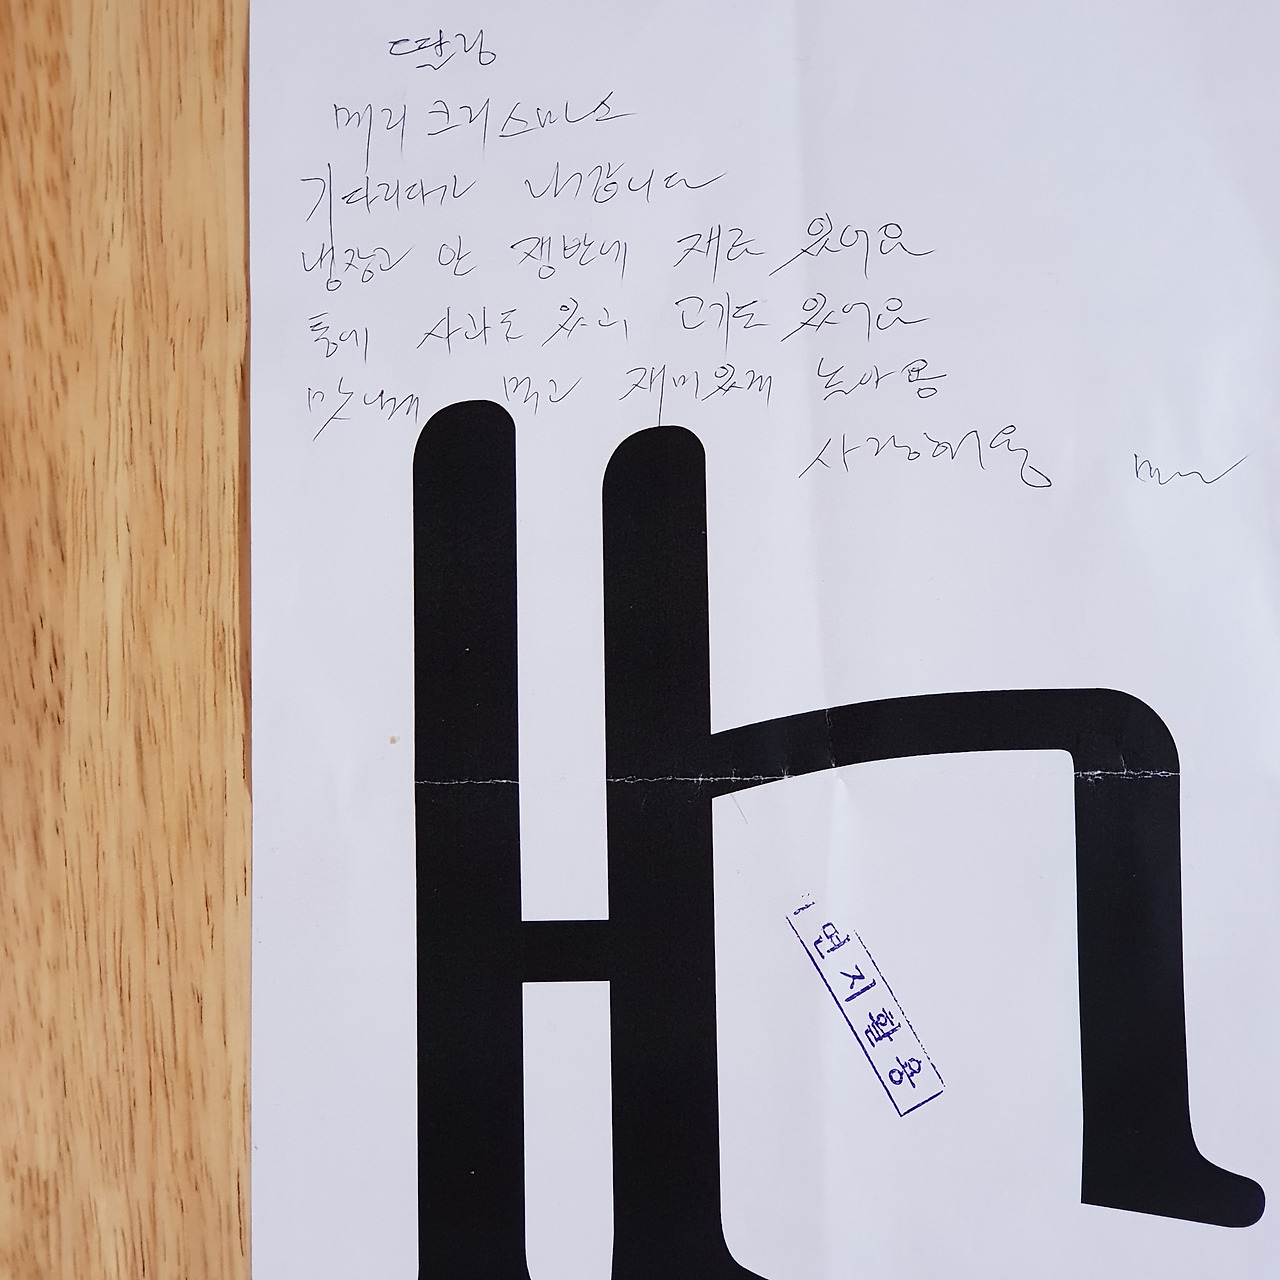 딸링
메리 크리스마스
기다리다가 나갑니다
냉장고 안 쟁반에 재료 있어요
통에 사과도 있고 고기도 있어요
맛나게 먹고 재미있게 놀아용
사랑해용
면지활용